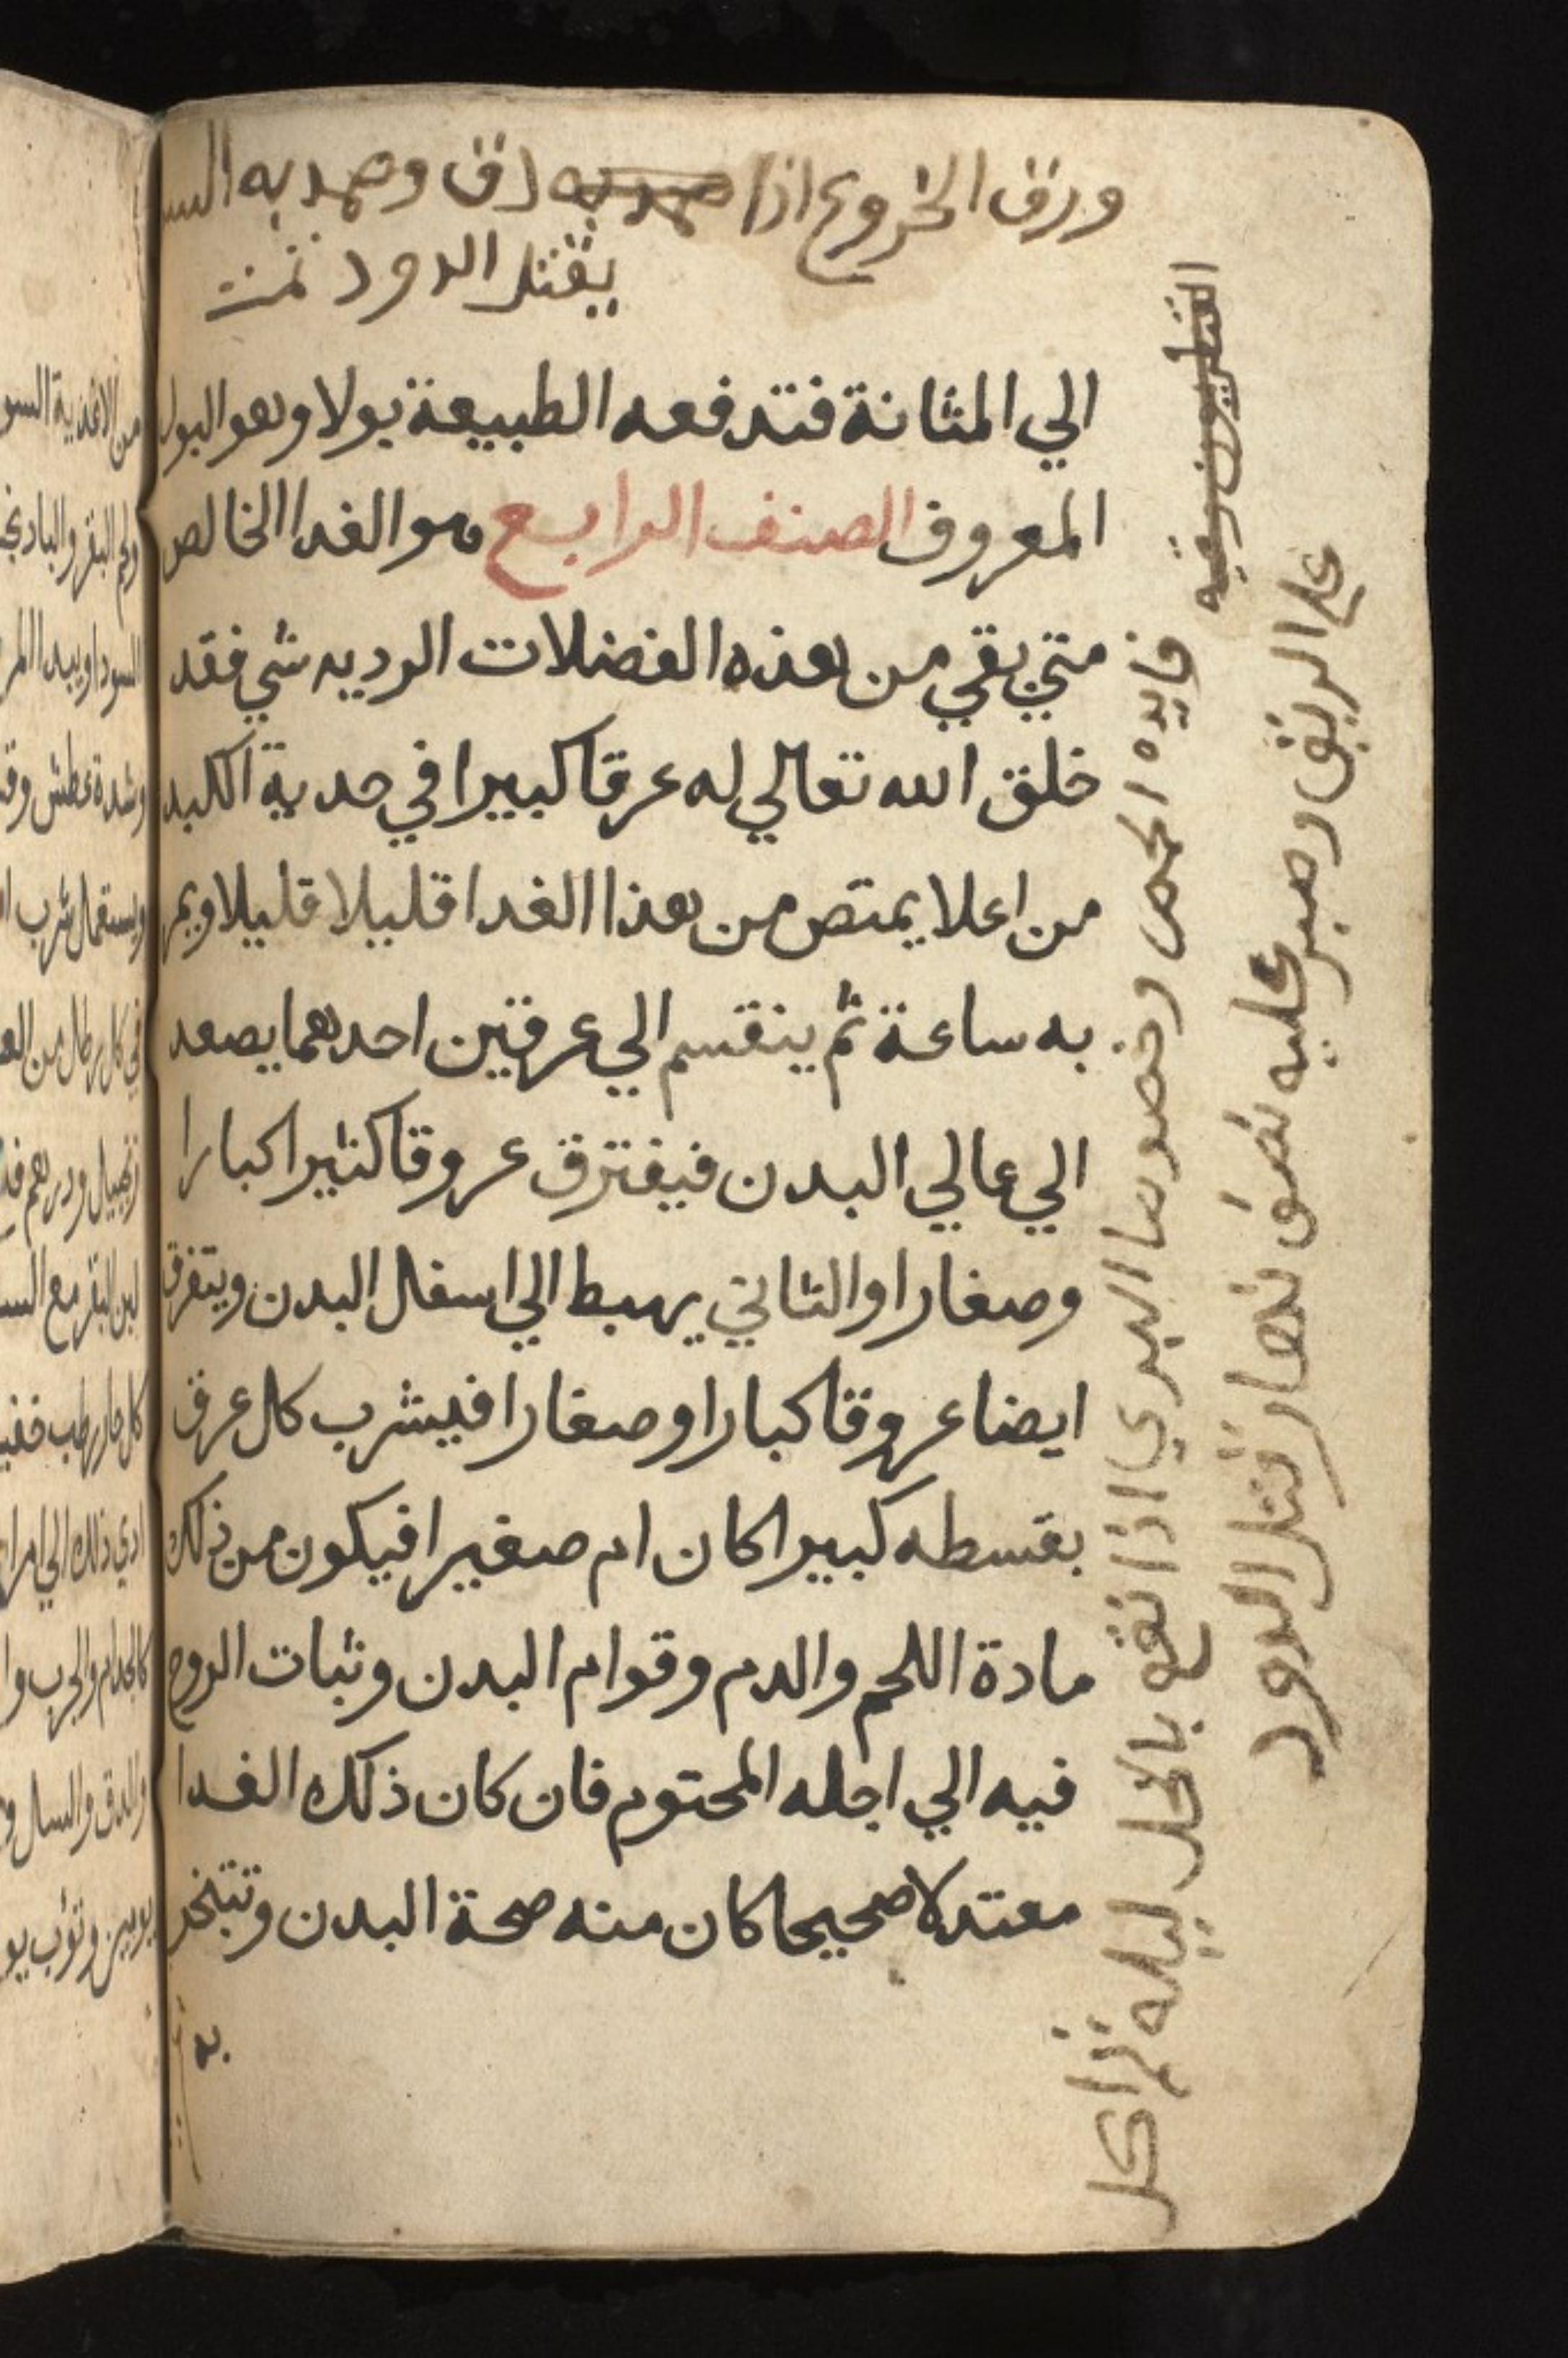 ورق الخروع اذا ضمد به دق وضمد به
يقتل الدود تمت
الي المثانة فتدفعه الطبيعة بولا وهو البول
المعروف الصنف الرابع وهو الغدا الخالص
متي بقي من هذه الفضلات الرديه شي فقد
خلق الله تعالي له عرقا كبيرا في حدبة الكبد
من اعلا يمتص من هذا الغدا قليلا قليلا ويمر
به ساعة ثم ينقسم الي عرقين احدهما يصعد
الي عالي البدن فيفترق عروقا كثيرا كبارا
وصغارا والثاني يهبط الي اسفل البدن ويتفرق
ايضا عروقا كبارا وصغارا فيشرب كل عرق
بقسطه كبيرا كان ام صغيرا فيكون من ذلك
مادة اللحم والدم وقوام البدن وثبات الروح
فيه الي اجله المحتوم فان كان ذلك الغدا
معتدلا صحيحا كان منه صحة البدن وتبتخر
به
فايده الحمص وخصوصا البري اذا نقع بالخل ليله ثم اكل
علي الريق وصبر عليه نصف نهار قتل الدود
من الاغذية
ولحم البقر
وشدة عطش
في كل رطل من
لبن البقر مع
كل حار رطب
كالجذام والجرب
والدق والسل